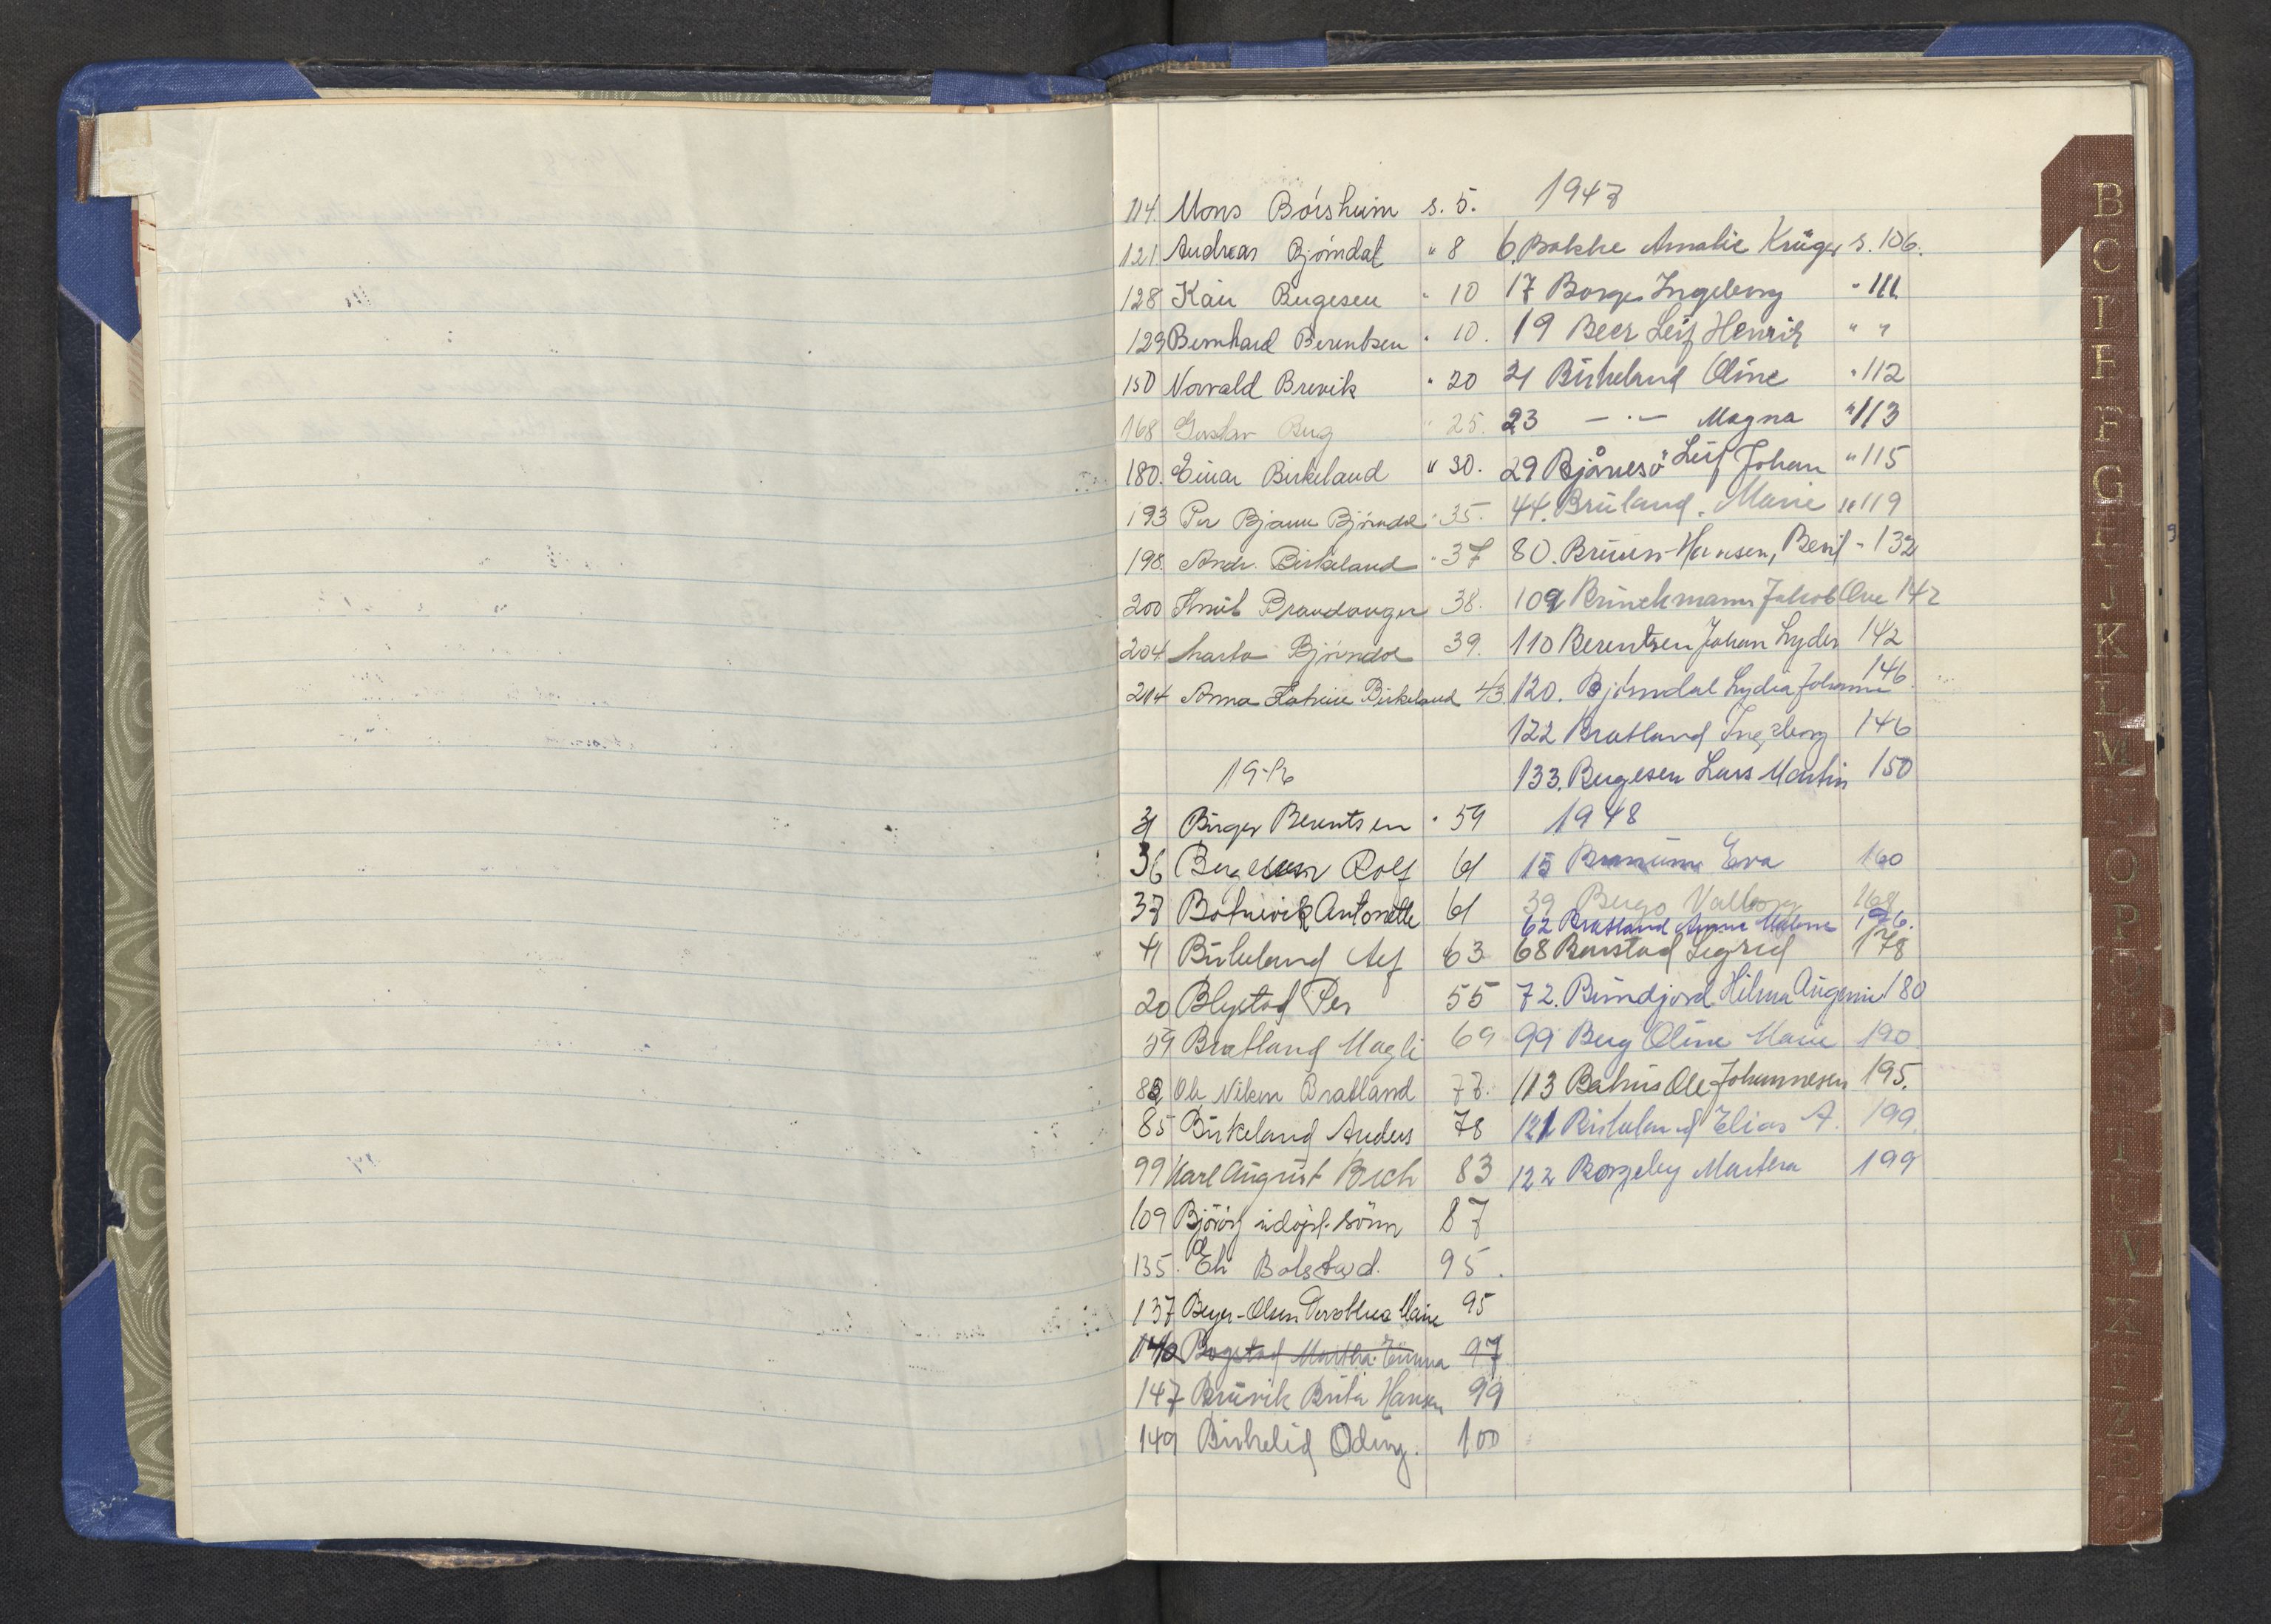 114. Mons Börsheim s. 5.
121 Andreas Bjørndal " 8
128 Kari Birgesen " 10
129 Bernhard Berentsen " 10.
150 Norvald Brevik " 20
168 Gustav Berg " 25.
180. Einar Birkeland " 30.
193 Per Bjarne Bjørndal " 35.
198. Andr. Birkeland " 37
200 Knut Brandanger 38.
204 Marta Bjørndal 39.
214 Anna Katrine Birkeland 43.
1946
31 Birger Berentsen " 59
36 Bergesen Rolf 61
37 Botnevik Antonette 61
41 Birkeland Alf 63
20 Blystad Per 55
59 Bratland Magli 69
82 Ole Nilsen Bratland 77.
85 Birkeland Anders 78
99 Karl August Bech 83
109 Björör udöpt sönn 87
135. Eli Bolstad. 95.
137 Beyer-Olsen Dorothea Marie 95
140 Bogstad Martha Emma 97
147 Brüvik Brita Hansen 99
149 Birkelid Oding. 100
1947
6. Bakke Amalie Krüger s. 106.
17 Borge Ingeborg " 111
19 Beer Leif Henrik " "
21 Birkeland Oline " 112
23 — " — Magna " 113
29 Bjånesö Leif Johan " 115
44. Brüland, Marie " 119
80. Bruun-Hansen, Beril - 132
109 Brinchmann Jakob Ove 142
110 Berentsen Johan Lyder 142
120. Bjørndal Lydia Johanne 146
122 Bratland Ingeborg 146
133. Bergesen Lars Martin 150
1948
15 Eva 160
39 Bergo Valborg 168
62 Bratland Anna Malene 176.
68 Barstad Sigrid 178
72. Birndjord Hilma Augenie 180
99 Berg Oline Marie 190
113 Bahus Ole Johannesen 195.
121 Birkeland Elias A. 199.
122 Borgeby Martha 199
B
C
D
E
F
G
H
J
K
L
M
N
O
P